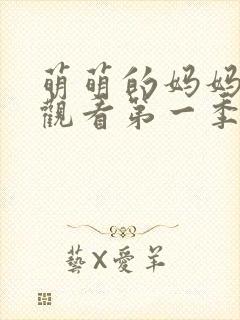 萌萌的妈妈
觀看第一季
藝X愛羊